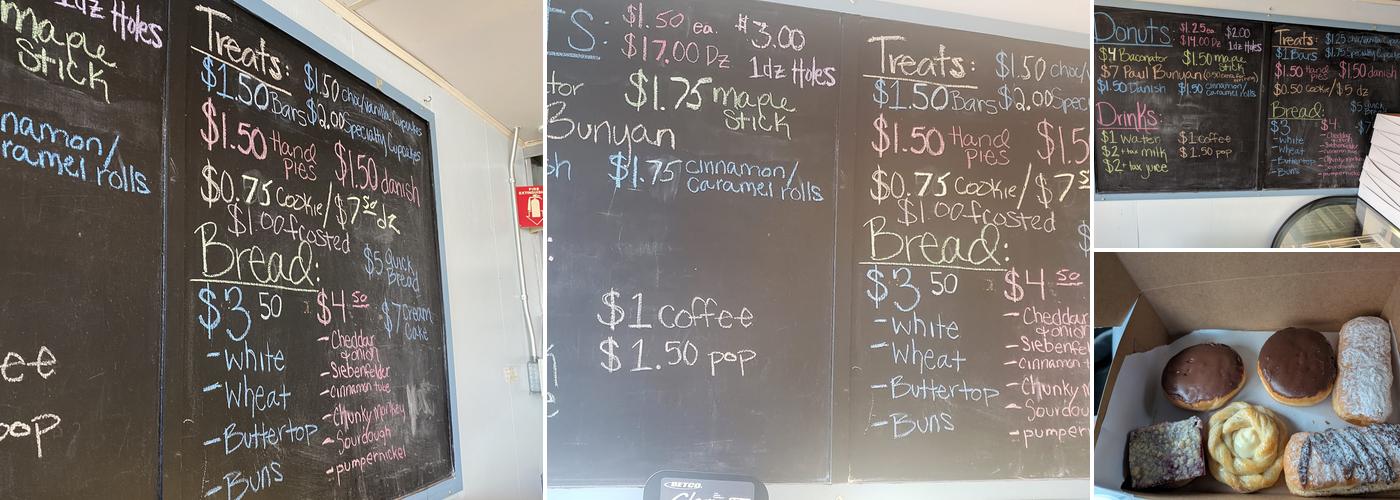 1dz Holes
maple
Stick
namon/
ramel rolls
ee
pop
Treats:
$1.50 Bars
$1.50 choc/vanilla Cupcakes
$2.00 Specialty Cupcakes
$1.50 Hand
Pies
$1.50 danish
$0.75 Cookie/$7 50 dz
$1.00 frosted
Bread:
$5 Quick
Bread
$3 50
-white
-wheat
-Buttertop
-Buns
$4 50
-Cheddar
& onion
-Siebenfelder
-cinnamon tube
-Chunky monkey
-Sourdough
-pumpernickel
$7 Cream
Cake
TS:
$1.50 ea.
$17.00 Dz
$3.00
1dz Holes
tor
$1.75 maple
Stick
Bunyan
sh
$1.75 cinnamon/
Caramel rolls
$1 coffee
$1.50 pop
Treats:
$1.50 Bars
$1.50 choc/v
$2.00 Spec
$1.50 Hand
Pies
$1.5
$0.75 Cookie/$7 5
$1.00 frosted
Bread:
$
$3 50
-white
-Wheat
-Buttertop
-Buns
$4 50
-Cheddar
& onion
-Siebenfel
-cinnamon t
-Chunky m
-Sourdou
-pumpern
BETCO
FIRE
EXTINGUISHER
Donuts:
$1.25 ea.
$14.00 Dz
$2.00
1dz Holes
$4 Baconator
$1.50 maple
Stick
$7 Paul Bunyan
$1.50 Danish
$1.50 cinnamon/
Caramel rolls
Drinks:
$1 water
$2 + tax milk
$2 + tax juice
$1 coffee
$1.50 pop
Treats:
$1 Bars
$1.25 choc/vanilla
$1.75 Specialty Cup
$1.50 Hand
Pies
$1.50 danis
$0.50 Cookie/$5 dz
Bread:
$5 Quick
$3
-white
-wheat
-Buttertop
-Buns
$4
-Cheddar
& onion
-Siebenfelder
-cinnamon tube
-Chunky monkey
-Sourdough
-pumpernickel